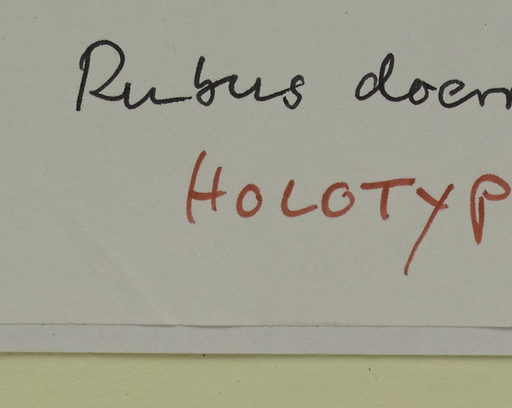 Rubus doerr
HOLOTYP